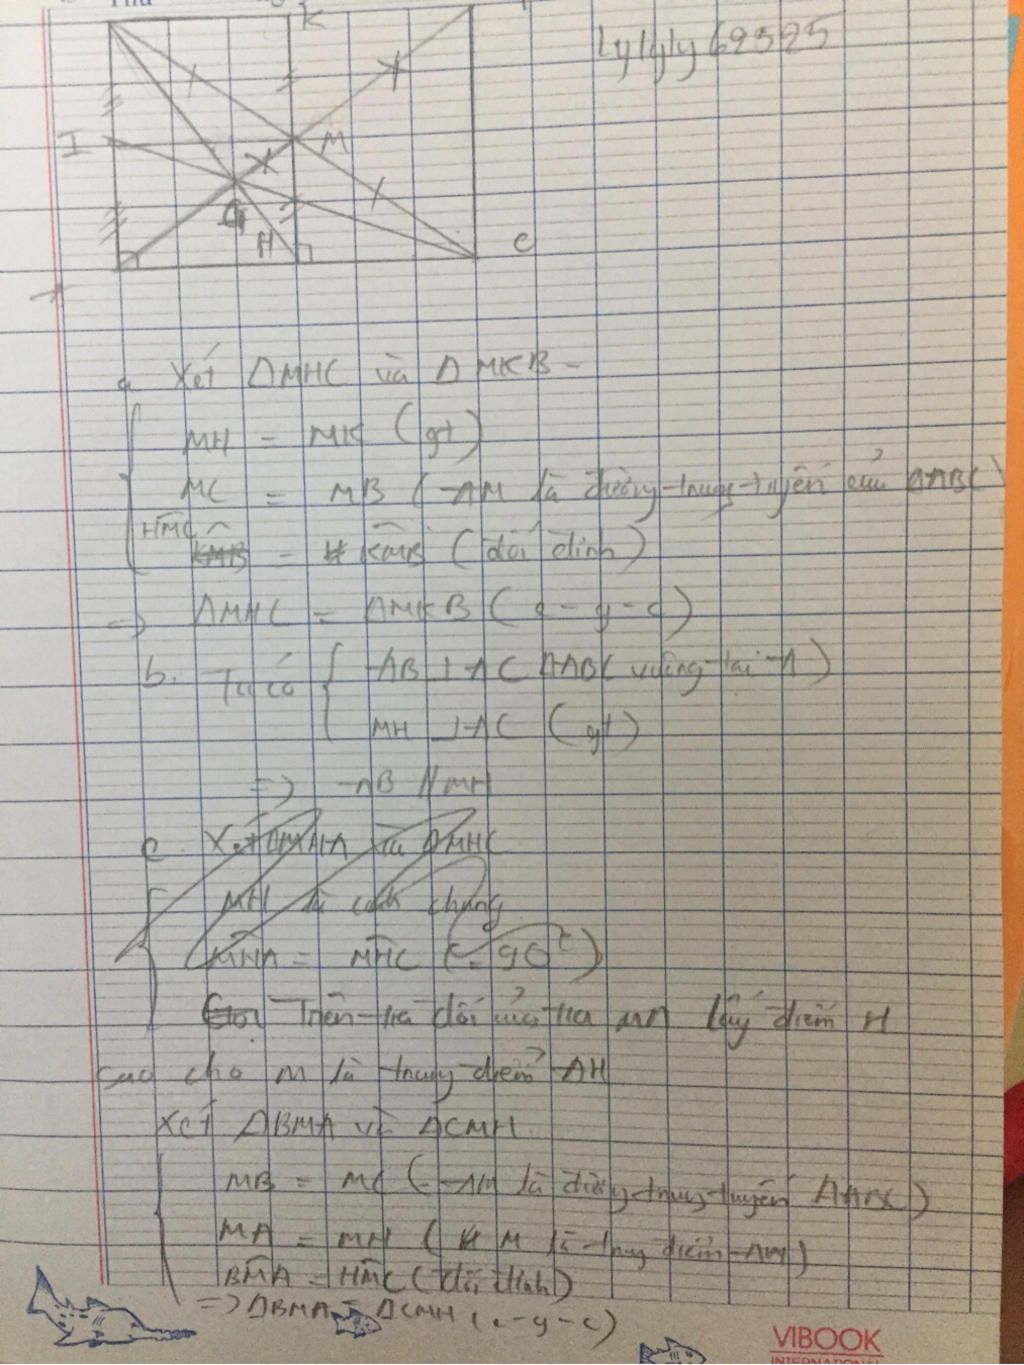 K
Lylyly62525
I
M
G
H
C
a. Xét ΔMHC và ΔMKB
MH = MK (gt)
MC = MB (AM là đường trung tuyến của ΔABC)
HMC = KMB (đối đỉnh)
=> ΔMHC = ΔMKB (c-g-c)
b. Ta có AB ⊥ AC ΔABC vuông tại A)
MH ⊥ AC (gt)
=> AB // MH
c. Xét ΔMHA và ΔMHC
MH là cạnh chung
MHA = MHC (= 90°)
Trên tia đối của tia MA lấy điểm H
sao cho M là trung điểm AH
Xét ΔBMA và ΔCMH
MB = MC (AM là đường trung tuyến ΔABC)
MA = MH (M là trung điểm AM)
BMA = HMC (đối đỉnh)
=> ΔBMA = ΔCMH (c-g-c)
VIBOOK
INTERNATIONAL